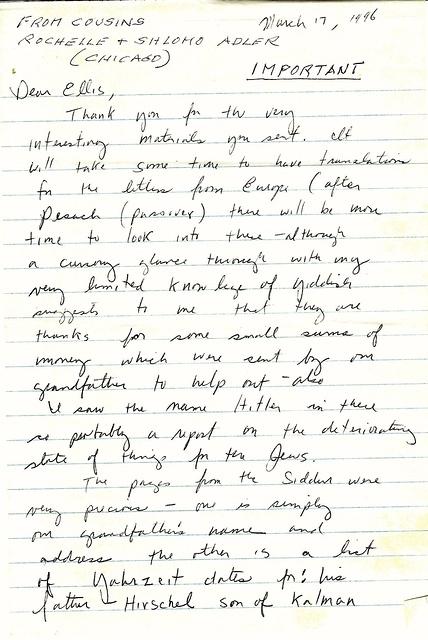 FROM COUSINS
ROCHELLE + SHLOMO ADLER
(CHICAGO)
March 17, 1996
IMPORTANT
Dear Ellis,
Thank you for the very
interesting materials you sent. It
will take some time to have translation
for the letters from Europe (after
Pesach (passover) there will be more
time to look into these - although
a cursory glance through with my
very limited knowledge of Yiddish
suggests to me that they are
thanks for some small sums of
money which were sent by our
grandfather to help out - also
I saw the name Hitler in there
so probably a report on the deteriorating
state of things for the Jews.
The pages from the Siddur were
very precious - one is simply
our grandfather's name and
address the other is a list
of Yahrzeit dates for: his
father - Hirschel son of Kalman